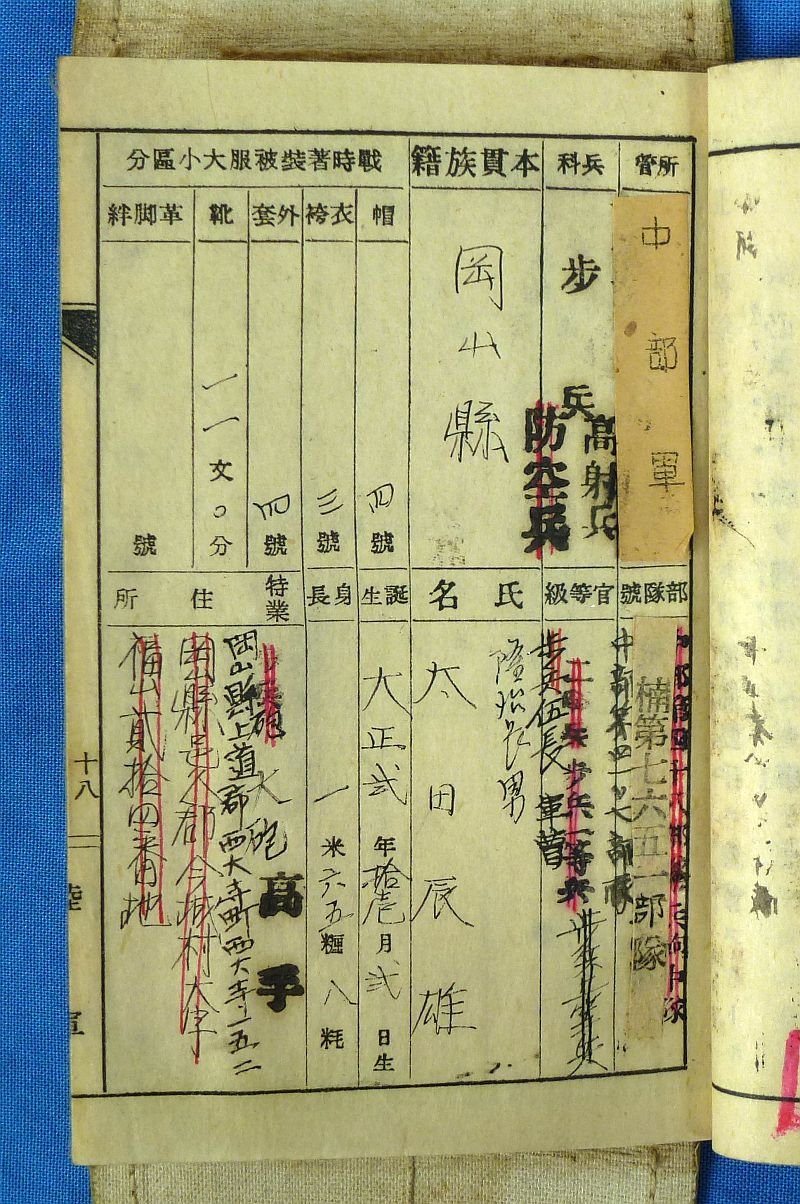 所管
中部軍
兵科
步兵
高射兵
防空兵
本貫族籍
岡山縣
戰時著裝被服大小區分
帽
四號
衣袴
三號
外套
四號
靴
一一文〇分
革脚絆
號
部隊號
楠第七六五一部隊
官等級
步兵一等兵
步兵伍長
軍曹
氏名
長男
太田辰雄
誕生
大正貳年拾壱月貳日生
身長
一米六五糎八粍
特業
火砲
高手
住所
岡山縣上道郡西大寺町西大寺一五二
岡山縣邑久郡今城村大字
福山貳拾四番地
十八
陸
軍